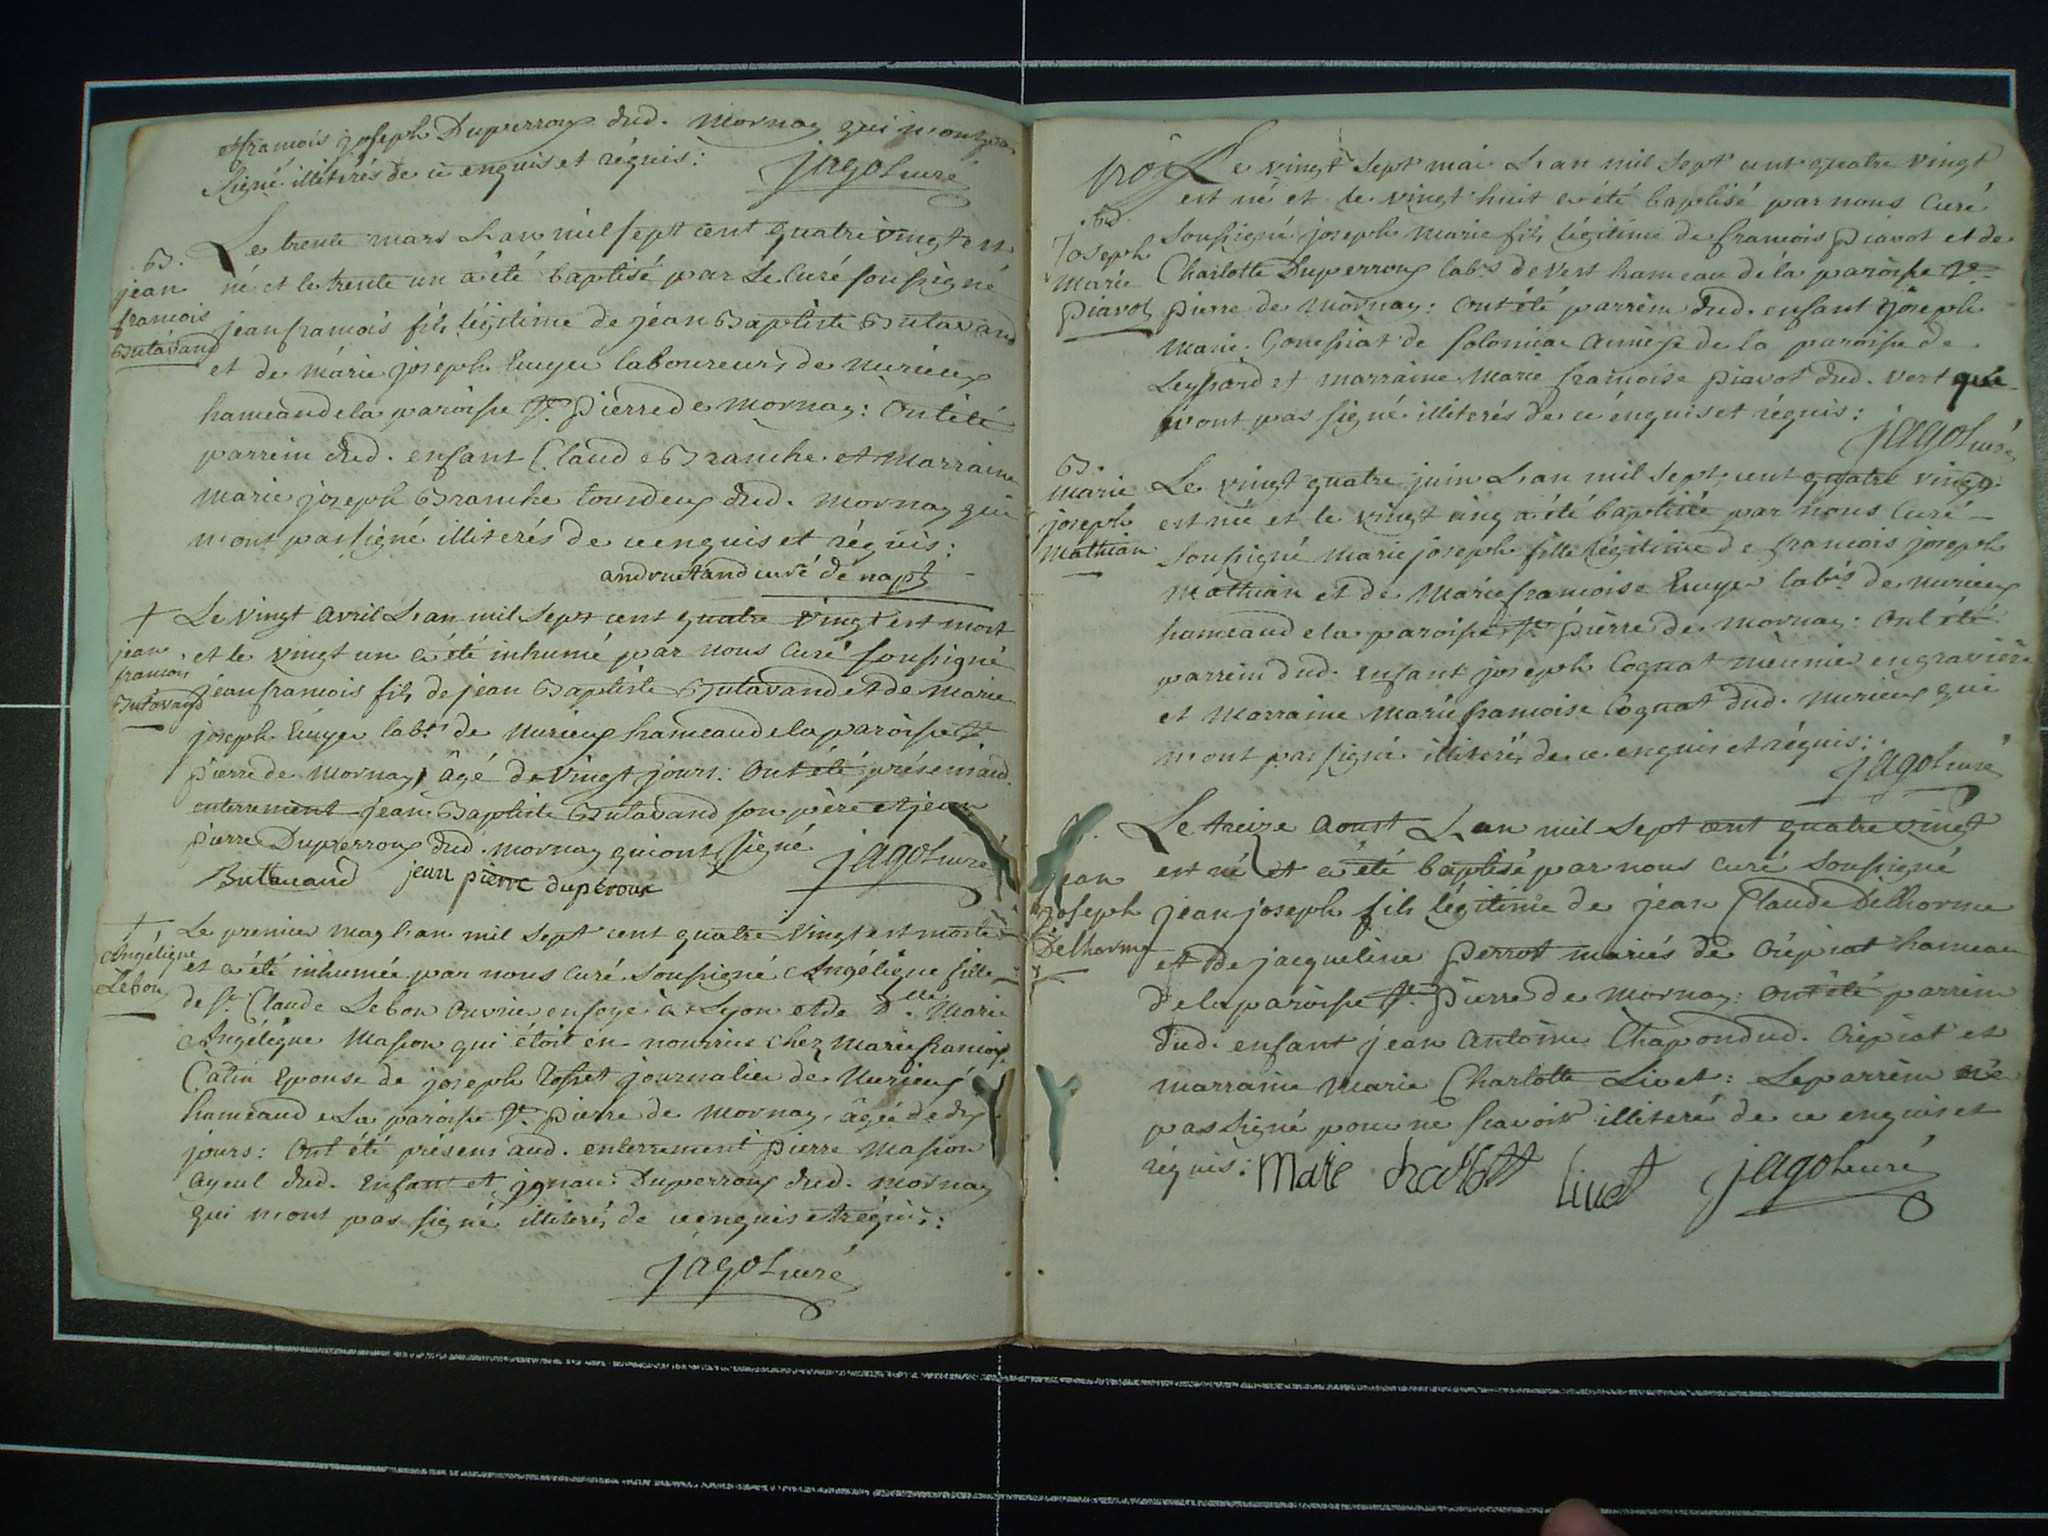 et francois joseph Duperroux dud. Mornay qui n'ont pas
signé illiterés de ce enquis et réquis: jagot curé
B.
jean
francois
Butavand
Le trente mars L'an mil sept cent quatre vingt est
né et le trente un a été baptisé par Le Curé soussigné
jean francois fils légitime de jean Baptiste Butavand
et de marie joseph Emyer laboureurs de Nurieux
hameau de la paroisse St. Pierre de Mornay: Ont été
parrein dud. enfant Claude Branche et Marraine
Marie joseph Branche tous deux dud. Mornay qui
n'ont pas signé illiterés de ce enquis et réquis:
andruetand curé de napt
†
jean
francois
Butavand
Le vingt avril L'an mil sept cent quatre vingt est mort
et le vingt un a été inhumé par nous Curé soussigné
jean francois fils de jean Baptiste Butavand et de Marie
joseph Emyer labrs de Nurieux hameau de la paroisse St.
Pierre de Mornay, âgé de vingt jours: Ont été présens aud.
enterrement jean Baptiste Butavand son père et jean
pierre Duperroux dud. mornay qui ont signé jagot curé
Butavand jean pierre duperoux
†
Angélique
Lebon
Le premier may L'an mil sept cent quatre vingt est morte
et a été inhumée par nous curé soussigné Angélique fille
de Sr. Claude Lebon ouvrier en soye à Lyon et de Dlle. Marie
Angélique Masson qui étoit en nourrice chez Marie francoise
Catin Epouse de joseph Tosset journalier de Nurieux
hameau de La paroisse St. pierre de Mornay, âgée de dix
jours: Ont été présens aud. enterrement pierre Masson
ayeul dud. Enfant et ignace Duperroux dud. Mornay
qui n'ont pas signé illiterés de ce enquis et réquis:
jagot curé
Bd.
Joseph
Marie
Piavot
Le vingt sept mai L'an mil sept cent quatre vingt
est né et le vingt huit a été baptisé par nous Curé
soussigné joseph Marie fils légitime de francois Piavot et de
Charlotte Duperroux labrs de Vers hameau de la paroisse St.
Pierre de Mornay: Ont été parrein dud. enfant joseph
Marie Gonessiat de Solomiat annexe de la paroisse de
Leyssard et marraine Marie francoise Piavot dud. Vert qui
n'ont pas signé illiterés de ce énquis et réquis:
jagot curé
B
Marie
joseph
Mathian
Le vingt quatre juin L'an mil sept cent quatre vingt
est née et le vingt cinq a été baptisée par nous Curé
soussigné Marie joseph fille légitime de francois joseph
Mathian et de Marie francoise Emyer labrs de Nurieux
hameau de la paroisse St. pierre de Mornay: Ont été
parrein dud. enfant joseph Cognat meunier en gravière
et Marraine Marie francoise Cognat dud. Nurieux qui
n'ont pas signé illiterés de ce enquis et réquis:
jagot curé
jean
joseph
Delhorme
Le treize aoust L'an mil sept cent quatre vingt
est né et a été baptisé par nous curé soussigné
jean joseph fils légitime de jean Claude Delhorme
et de jacqueline Perrot mariés de Crépiat hameau
de la paroisse St. Pierre de Mornay: Ont été parrein
dud. enfant jean antoine Chapon dud. Crépiat et
marraine Marie Charlotte Livet: Le parrein n'a
pas signé pour ne scavoir illiteré de ce enquis et
réquis: Marie charlott Livet jagot curé